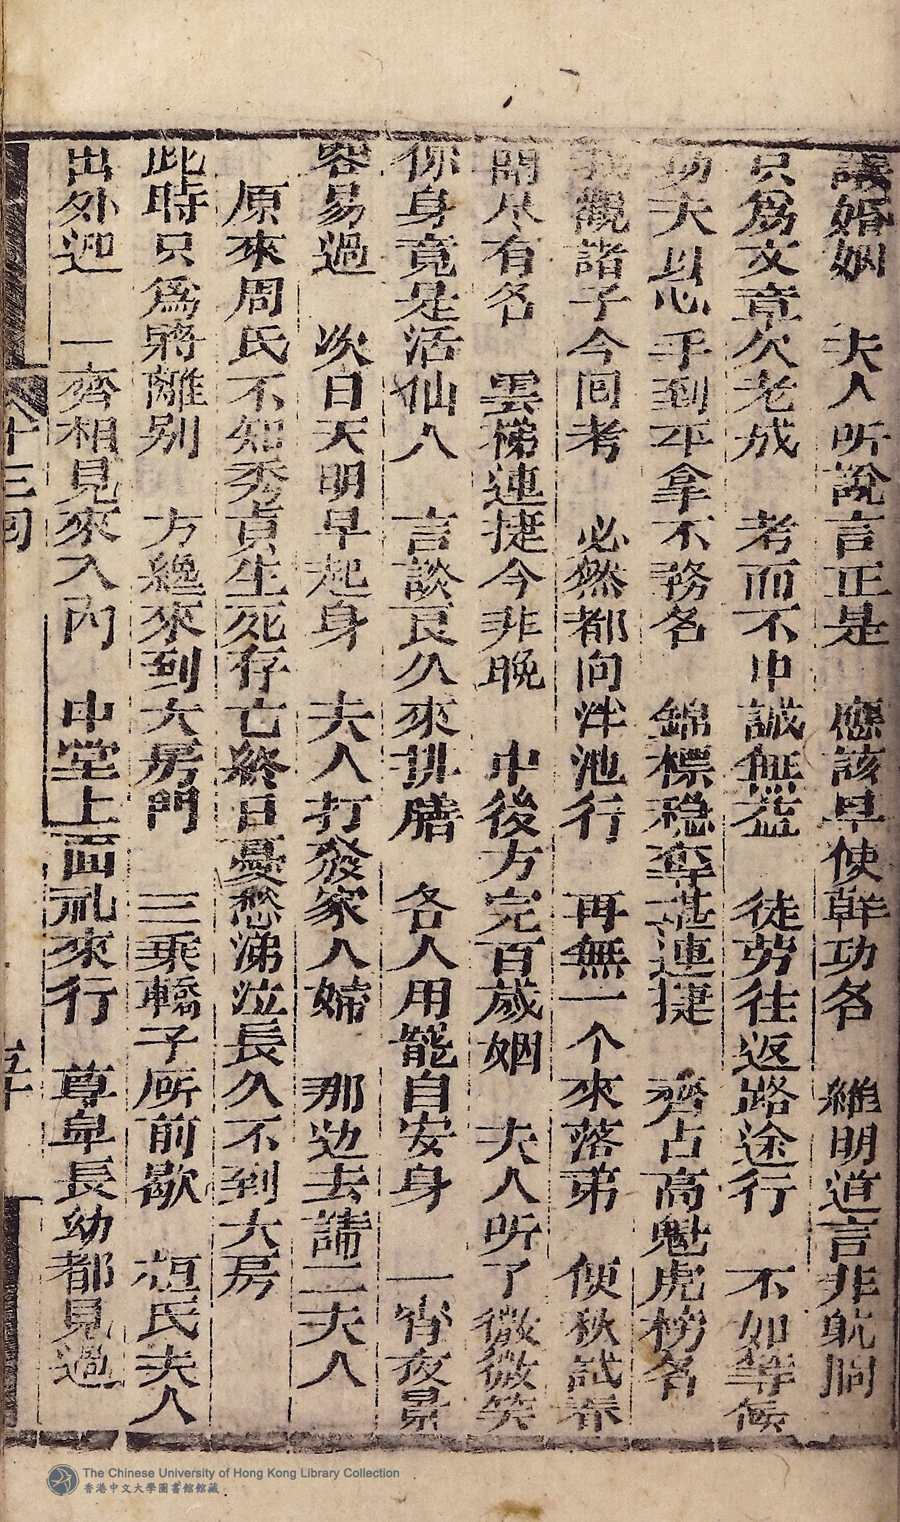 議婚姻　夫人听說言正是　應該早使幹功名　維明道言非躭悞
只爲文章欠老成　考而不中誠無益　徒劳往返路途行　不如等候
功夫以心手到平拿不務名　錦標稳奪甚連捷　齊占高魁虎榜名
我觀諸子今囘考　必然都向泮池行　再無一个來落第　便狄試春
闈尽有名　雲梯連捷今非晚　中後方完百歲姻　夫人听了微微笑
你身竟是活仙人　言談良久來排膳　各人用罷自安身　一宵夜景
容易過　次日天明早起身　夫人打發家人婦　那边去請二夫人
原來周氏不知秀貞生死存亡終日憂愁涕泣長久不到大房
此時只爲將離别　方纔來到大房門　三乘轎子㕔前歇　桓氏夫人
出外迎　一齊相見來入內　中堂上面礼來行　尊卑長幼都見過
十三囘
五十
The Chinese University of Hong Kong Library Collection
香港中文大學圖書館館藏